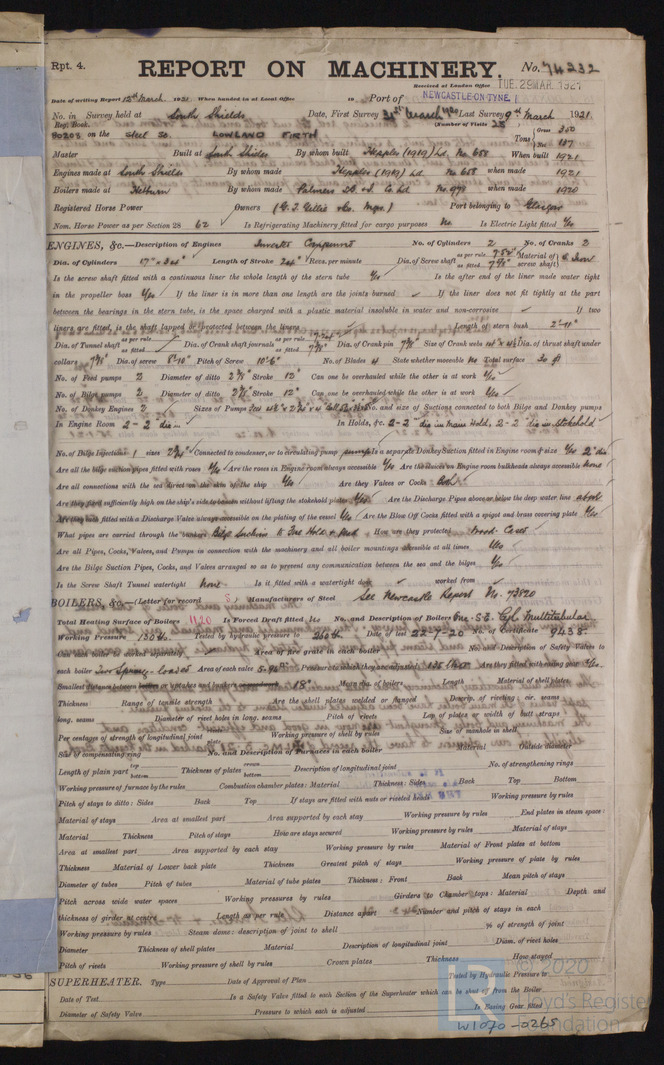 Rpt. 4.
REPORT ON MACHINERY.
No. 74232
Received at London Office TUE. 29 MAR. 1921
Date of writing Report 12th March 1921 When handed in at Local Office 19 Port of NEWCASTLE-ON-TYNE
No. in Survey held at South Shields Date, First Survey March Last Survey 9th March 1921
Reg. Book. (Number of Visits
80208 on the Steel Sc. LOWLAND Tons Gross 350 Net 137
Master Built at South Shields By whom built Hepples (1919) Ld. No 658 When built 1921
Engines made at South Shields By whom made Hepples (1919) Ld. No 658 when made 1921
Boilers made at Hebburn By whom made Palmers Co Ld No 978 when made 1920
Registered Horse Power Owners (G. T. Gillie & Co. Mgrs.) Port belonging to Glasgow
Nom. Horse Power as per Section 28 62 Is Refrigerating Machinery fitted for cargo purposes No Is Electric Light fitted Yes
ENGINES, &c.—Description of Engines Inverted Compound No. of Cylinders 2 No. of Cranks 2
Dia. of Cylinders 17" × 34" Length of Stroke 24" Revs. per minute Dia. of Screw shaft as per rule as fitted Material of screw shaft Iron
Is the screw shaft fitted with a continuous liner the whole length of the stern tube Yes Is the after end of the liner made water tight
in the propeller boss Yes If the liner is in more than one length are the joints burned If the liner does not fit tightly at the part
between the bearings in the stern tube, is the space charged with a plastic material insoluble in water and non-corrosive If two
liners are fitted, is the shaft lapped or protected between the liners Length of stern bush 2'-11"
Dia. of Tunnel shaft as per rule as fitted Dia. of Crank shaft journals as per rule as fitted Dia. of Crank pin Size of Crank webs Dia. of thrust shaft under
collars Dia. of screw 8'-10" Pitch of Screw 10'-6" No. of Blades 4 State whether moveable No Total surface 30 ft
No. of Feed pumps 2 Diameter of ditto Stroke 12" Can one be overhauled while the other is at work Yes
No. of Bilge pumps 2 Diameter of ditto Stroke 12" Can one be overhauled while the other is at work Yes
No. of Donkey Engines 2 Sizes of Pumps No. and size of Suctions connected to both Bilge and Donkey pumps
In Engine Room 2 - 2" dia In Holds, &c. 2 - 2" dia in main Hold, 2 - 2" dia in Stokehold
No. of Bilge Injections 1 sizes Connected to condenser, or to circulating pump pump Is a separate Donkey Suction fitted in Engine room & size Yes 2" dia
Are all the bilge suction pipes fitted with roses Yes Are the roses in Engine room always accessible Yes Are the sluices on Engine room bulkheads always accessible None
Are all connections with the sea direct on the skin of the ship Yes Are they Valves or Cocks Both
Are they fixed sufficiently high on the ship's side to be seen without lifting the stokehold plates Yes Are the Discharge Pipes above or below the deep water line above
Are they each fitted with a Discharge Valve always accessible on the plating of the vessel Yes Are the Blow Off Cocks fitted with a spigot and brass covering plate Yes
What pipes are carried through the bunkers Bilge Suctions to Fore Hold How are they protected Wood Cases
Are all Pipes, Cocks, Valves, and Pumps in connection with the machinery and all boiler mountings accessible at all times Yes
Are the Bilge Suction Pipes, Cocks, and Valves arranged so as to prevent any communication between the sea and the bilges Yes
Is the Screw Shaft Tunnel watertight None Is it fitted with a watertight door worked from
BOILERS, &c.—(Letter for record S) Manufacturers of Steel See Newcastle Report No. 73820
Total Heating Surface of Boilers 1120 Is Forced Draft fitted No No. and Description of Boilers One S.E. Cyl. Multitubular
Working Pressure 130 lb Tested by hydraulic pressure to 260 lb Date of test 22-7-20 No. of Certificate 9438
Can each boiler be worked separately Area of fire grate in each boiler No. and Description of Safety Valves to
each boiler Two Spring-loaded Area of each valve Pressure to which they are adjusted 135 lb Are they fitted with easing gear Yes
Smallest distance between boilers or uptakes and bunkers 18" Mean dia. of boilers Length Material of shell plates
Thickness Range of tensile strength Are the shell plates welded or flanged Descrip. of riveting: cir. seams
long. seams Diameter of rivet holes in long. seams Pitch of rivets Lap of plates or width of butt straps
Per centages of strength of longitudinal joint Working pressure of shell by rules Size of manhole in shell
Size of compensating ring No. and Description of Furnaces in each boiler Material Outside diameter
Length of plain part top bottom Thickness of plates crown bottom Description of longitudinal joint No. of strengthening rings
Working pressure of furnace by the rules Combustion chamber plates: Material Thickness: Sides Back Top Bottom
Pitch of stays to ditto: Sides Back Top If stays are fitted with nuts or riveted heads Working pressure by rules
Material of stays Area at smallest part Area supported by each stay Working pressure by rules End plates in steam space:
Material Thickness Pitch of stays How are stays secured Working pressure by rules Material of stays
Area at smallest part Area supported by each stay Working pressure by rules Material of Front plates at bottom
Thickness Material of Lower back plate Thickness Greatest pitch of stays Working pressure of plate by rules
Diameter of tubes Pitch of tubes Material of tube plates Thickness: Front Back Mean pitch of stays
Pitch across wide water spaces Working pressures by rules Girders to Chamber tops: Material Depth and
thickness of girder at centre Length as per rule Distance apart Number and pitch of stays in each
Working pressure by rules Steam dome: description of joint to shell % of strength of joint
Diameter Thickness of shell plates Material Description of longitudinal joint Diam. of rivet holes
Pitch of rivets Working pressure of shell by rules Crown plates Thickness How stayed
SUPERHEATER. Type Date of Approval of Plan Tested by Hydraulic Pressure to
Date of Test Is a Safety Valve fitted to each Section of the Superheater which can be shut off from the Boiler
Diameter of Safety Valve Pressure to which each is adjusted Is Easing Gear fitted
© 2020
Lloyd's Register
Foundation
W1070-0265